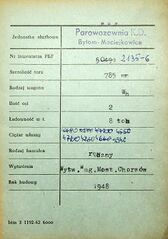 Jednostka służbowa
Parowozownia K.D.
Bytom-Maciejkowice
Nr inwentarza PKP 80491 2135-6
Szerokość toru 785 mm
Rodzaj wagonu Wh
Ilość osi 2
Ładowność w t 8 ton
Ciężar własny 4480 4200 4550
4700 4260 4600
Rodzaj hamulca ręczny
Wytwórnia Wytw.Wag.Most.Chorzów
Rok budowy 1948